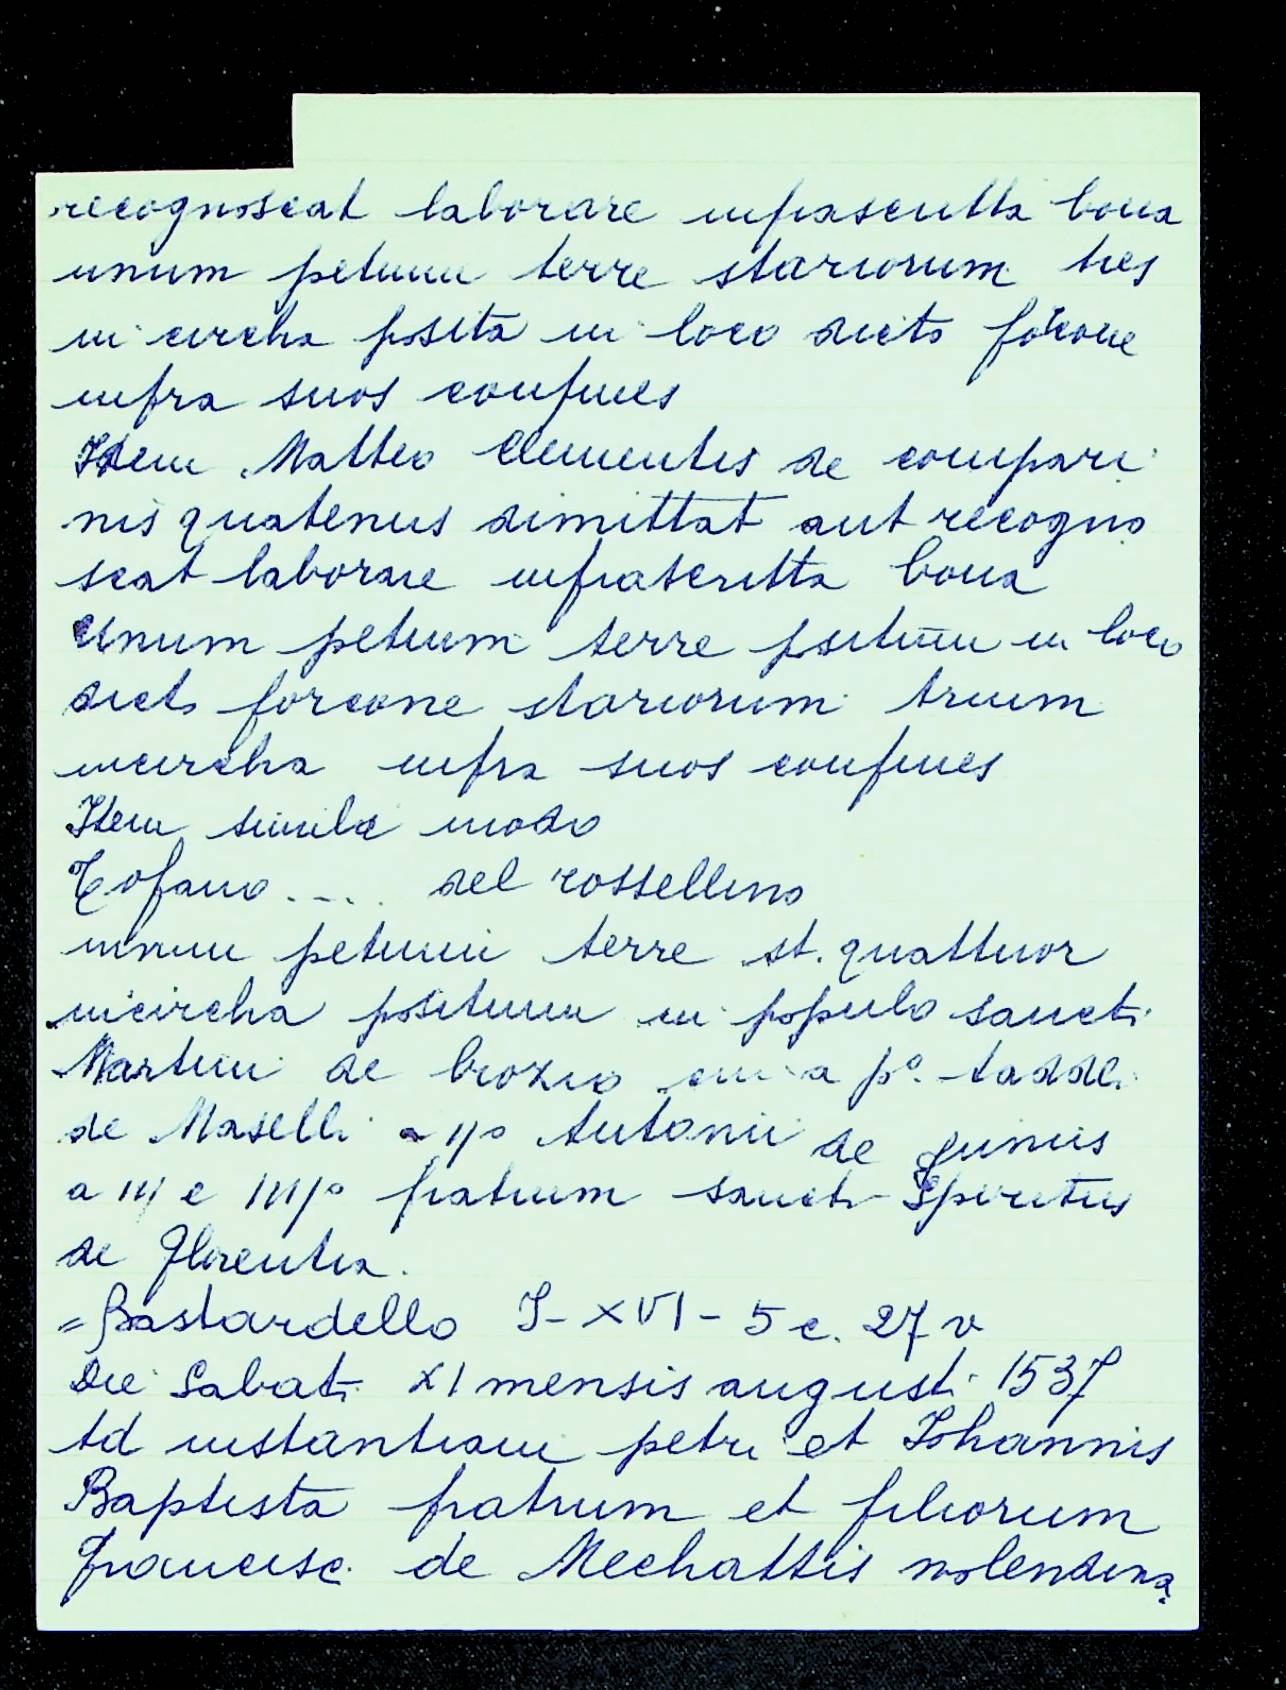 recognoscat laborare infrascritta bona
unum petium terre stariorum tres
in circha posita in loco dicto forcone
infra suos confines
Idem Matteo Clementis de compari
nis quatenus dimittat aut recogno
scat laborare infrascritta bona
Unum petium terre positum in loco
dicto forcone stariorum trium
incircha infra suos confines
Item simile modo
Tofano .... del rossellino
unum petium terre st. quattuor
incircha positum in populo sancti
Martini de brozio cui a po. taddei
de Maselli a IJo Antonii de Juniis
a IIJ e IIIJo fratrum sancti Spiritus
de Florentia.
= Bastardello I - XVI - 5 c. 27 v
Die Sabati XI mensis augusti 1537
Ad instantiam petri et Johannis
Baptista fratrum et filiorum
Francisci de Mechattis molendina